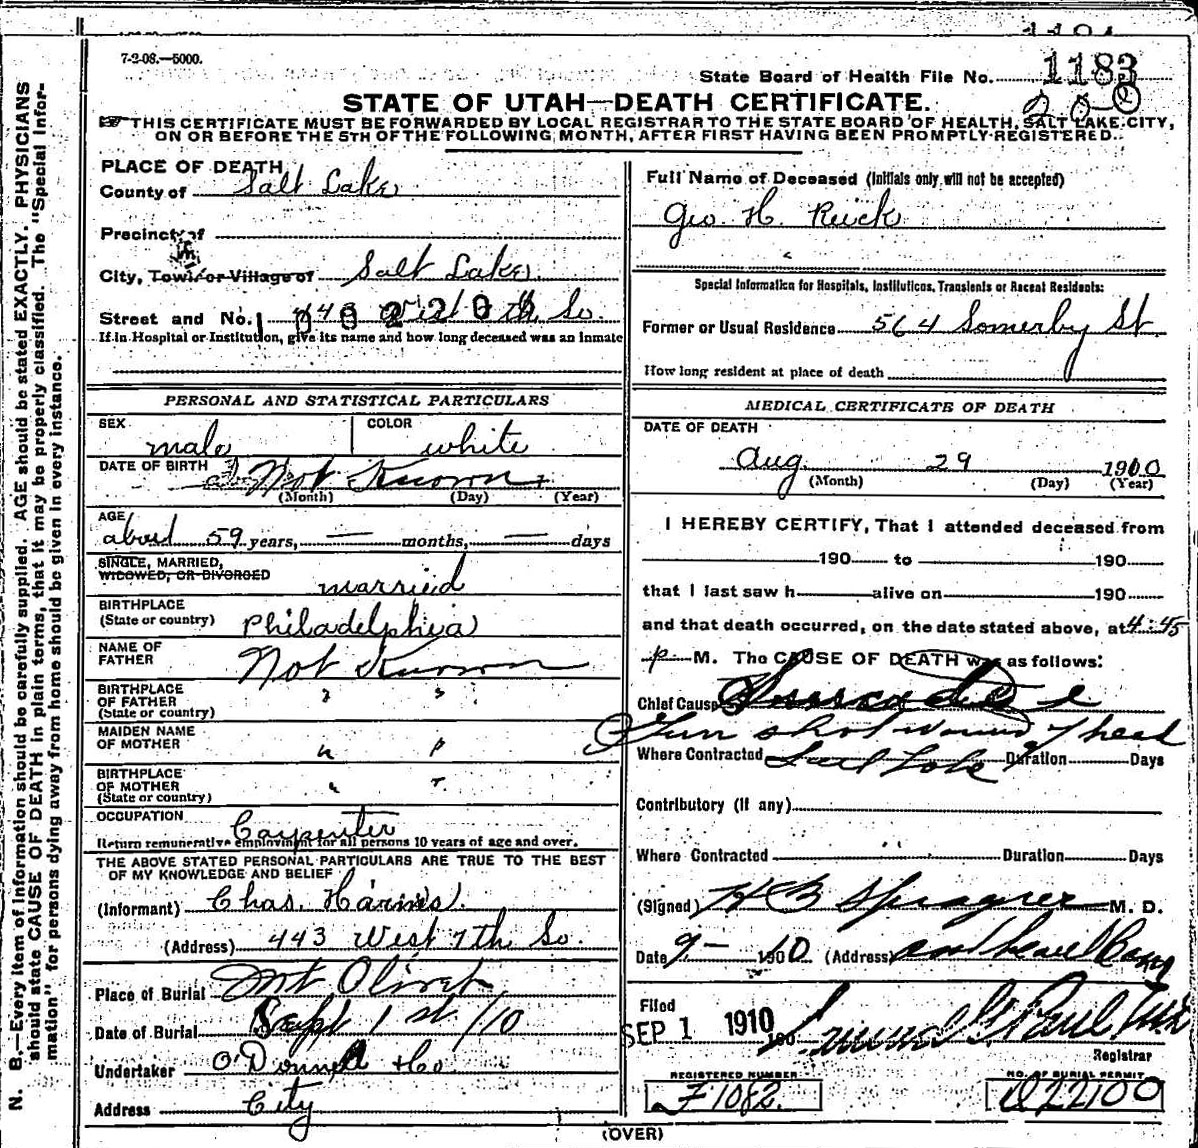 7-2-08.—5000.
State Board of Health File No. 1183
STATE OF UTAH—DEATH CERTIFICATE.
THIS CERTIFICATE MUST BE FORWARDED BY LOCAL REGISTRAR TO THE STATE BOARD OF HEALTH, SALT LAKE CITY,
ON OR BEFORE THE 5TH OF THE FOLLOWING MONTH, AFTER FIRST HAVING BEEN PROMPTLY REGISTERED.
N. B.—Every item of information should be carefully supplied. AGE should be stated EXACTLY. PHYSICIANS
should state CAUSE OF DEATH in plain terms, that it may be properly classified. The "Special Infor-
mation" for persons dying away from home should be given in every instance.
PLACE OF DEATH
County of Salt Lake
Precinct of
City, Town or Village of Salt Lake
Street and No. 443 West 7th So.
If in Hospital or Institution, give its name and how long deceased was an inmate
PERSONAL AND STATISTICAL PARTICULARS
SEX male COLOR white
DATE OF BIRTH Not Known
(Month) (Day) (Year)
AGE
about 59 years, — months, — days
SINGLE, MARRIED,
WIDOWED, OR DIVORCED married
BIRTHPLACE
(State or country) Philadelphia
NAME OF
FATHER Not Known
BIRTHPLACE
OF FATHER " "
(State or country)
MAIDEN NAME
OF MOTHER " "
BIRTHPLACE
OF MOTHER " "
(State or country)
OCCUPATION
Carpenter
Return remunerative employment for all persons 10 years of age and over.
THE ABOVE STATED PERSONAL PARTICULARS ARE TRUE TO THE BEST
OF MY KNOWLEDGE AND BELIEF
(Informant) Chas. Harries.
(Address) 443 West 7th So.
Place of Burial Mt Olivet
Date of Burial Sept 1st /10
Undertaker O'Donnell & Co
Address City
Full Name of Deceased (Initials only will not be accepted)
Geo. H. Ruick
Special Information for Hospitals, Institutions, Transients or Recent Residents:
Former or Usual Residence 564 Somerby St
How long resident at place of death
MEDICAL CERTIFICATE OF DEATH
DATE OF DEATH
Aug. 29 1910
(Month) (Day) (Year)
I HEREBY CERTIFY, That I attended deceased from
190 to 190
that I last saw h alive on 190
and that death occurred, on the date stated above, at 4:45
p M. The CAUSE OF DEATH was as follows:
Chief Cause Suicide
Gun shot wound of head
Where Contracted Salt Lake Duration Days
Contributory (if any)
Where Contracted Duration Days
(Signed) H B Sprague M. D.
Date 9- 1910 (Address)
Filed
SEP 1 1910 190
Registrar
REGISTERED NUMBER
F1082.
NO. OF BURIAL PERMIT
D22100
(OVER)